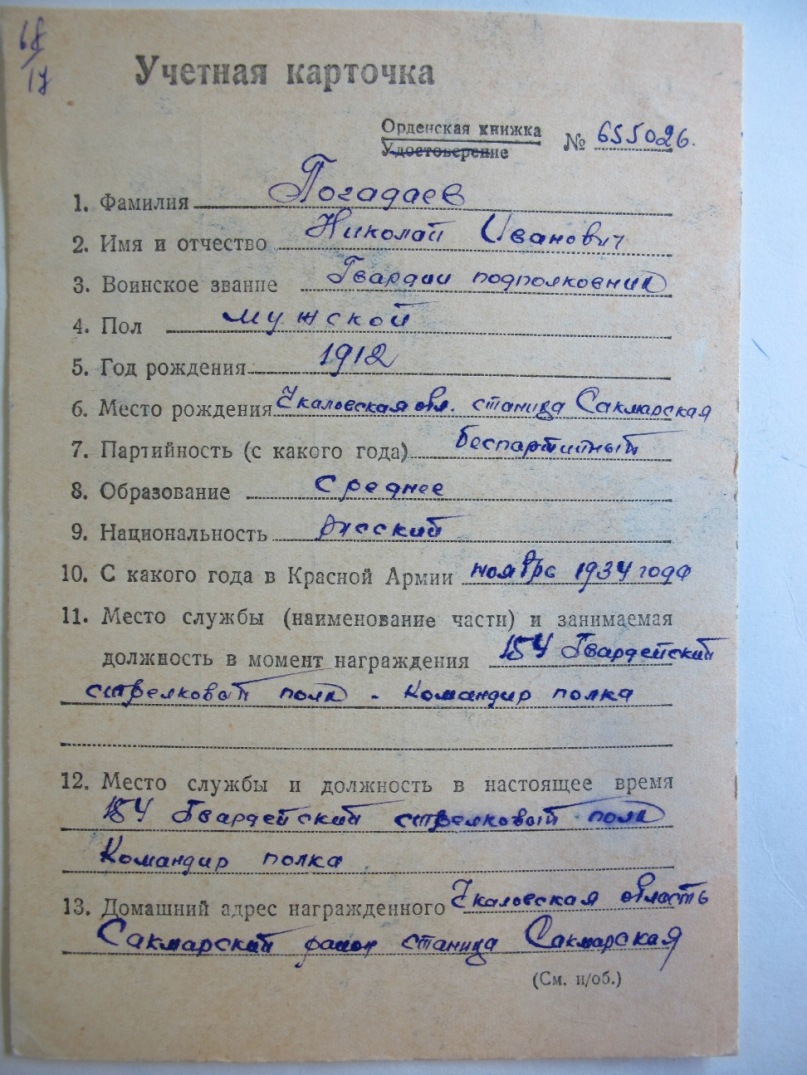 68
17
Учетная карточка
Орденская книжка
Удостоверение
№ 655026.
1. Фамилия Погадаев
2. Имя и отчество Николай Иванович
3. Воинское звание Гвардии подполковник
4. Пол мужской
5. Год рождения 1912
6. Место рождения Чкаловская обл. станица Сакмарская
7. Партийность (с какого года) беспартийный
8. Образование среднее
9. Национальность русский
10. С какого года в Красной Армии ноябрь 1934 года
11. Место службы (наименование части) и занимаемая
должность в момент награждения 184 Гвардейский
стрелковый полк - Командир полка
12. Место службы и должность в настоящее время
184 Гвардейский стрелковый полк
Командир полка
13. Домашний адрес награжденного Чкаловская область
Сакмарский район станица Сакмарская
(См. н/об.)